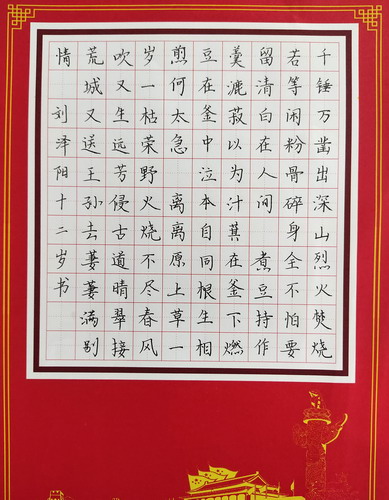 千锤万凿出深山烈火焚烧
若等闲粉骨碎身全不怕要
留清白在人间 煮豆持作
羹漉菽以为汁萁在釜下燃
豆在釜中泣本自同根生相
煎何太急 离离原上草一
岁一枯荣野火烧不尽春风
吹又生远芳侵古道晴翠接
荒城又送王孙去萋萋满别
情 刘泽阳十二岁书